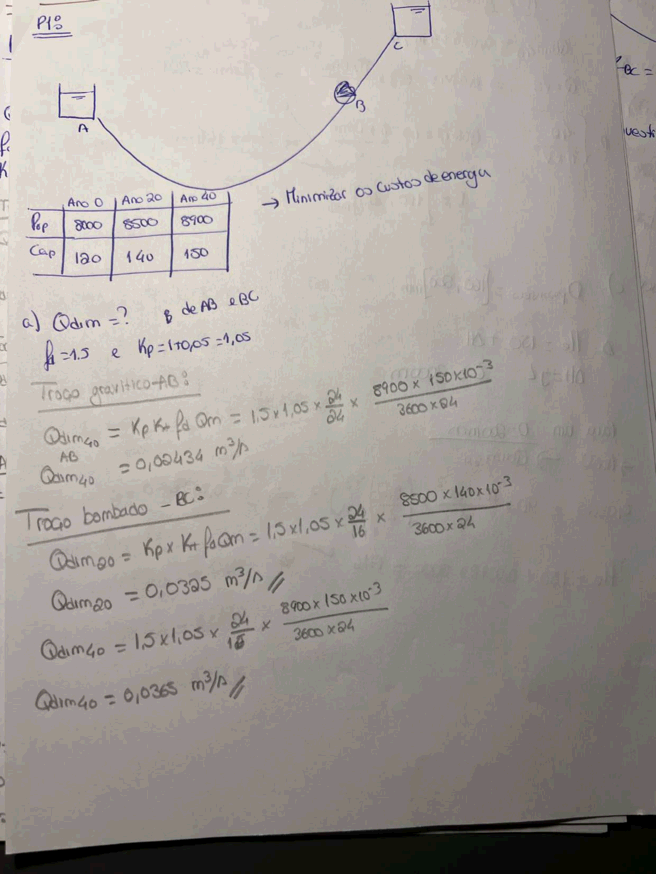 P1:
A
B
C
Ano 0 Ano 20 Ano 40
Pop 8000 8500 8900
Cap 120 140 150
→ Minimizar os custos de energia
a) Qdim = ? de AB e BC
fd = 1.5 e Kp = 1+0,05 = 1,05
Troço gravítico-AB:
Qdim40 = Kp Kt fd Qm = 1,5 x 1,05 x 24/24 x 8900 x 150x10^-3 / 3600 x 24
AB
Qdim40 = 0,02434 m³/s
Troço bombado - BC:
Qdim20 = Kp x Kt fd Qm = 1,5 x 1,05 x 24/16 x 8500 x 140 x 10^-3 / 3600 x 24
Qdim20 = 0,0325 m³/s //
Qdim40 = 1,5 x 1,05 x 24/16 x 8900 x 150 x 10^-3 / 3600 x 24
Qdim40 = 0,0365 m³/s //